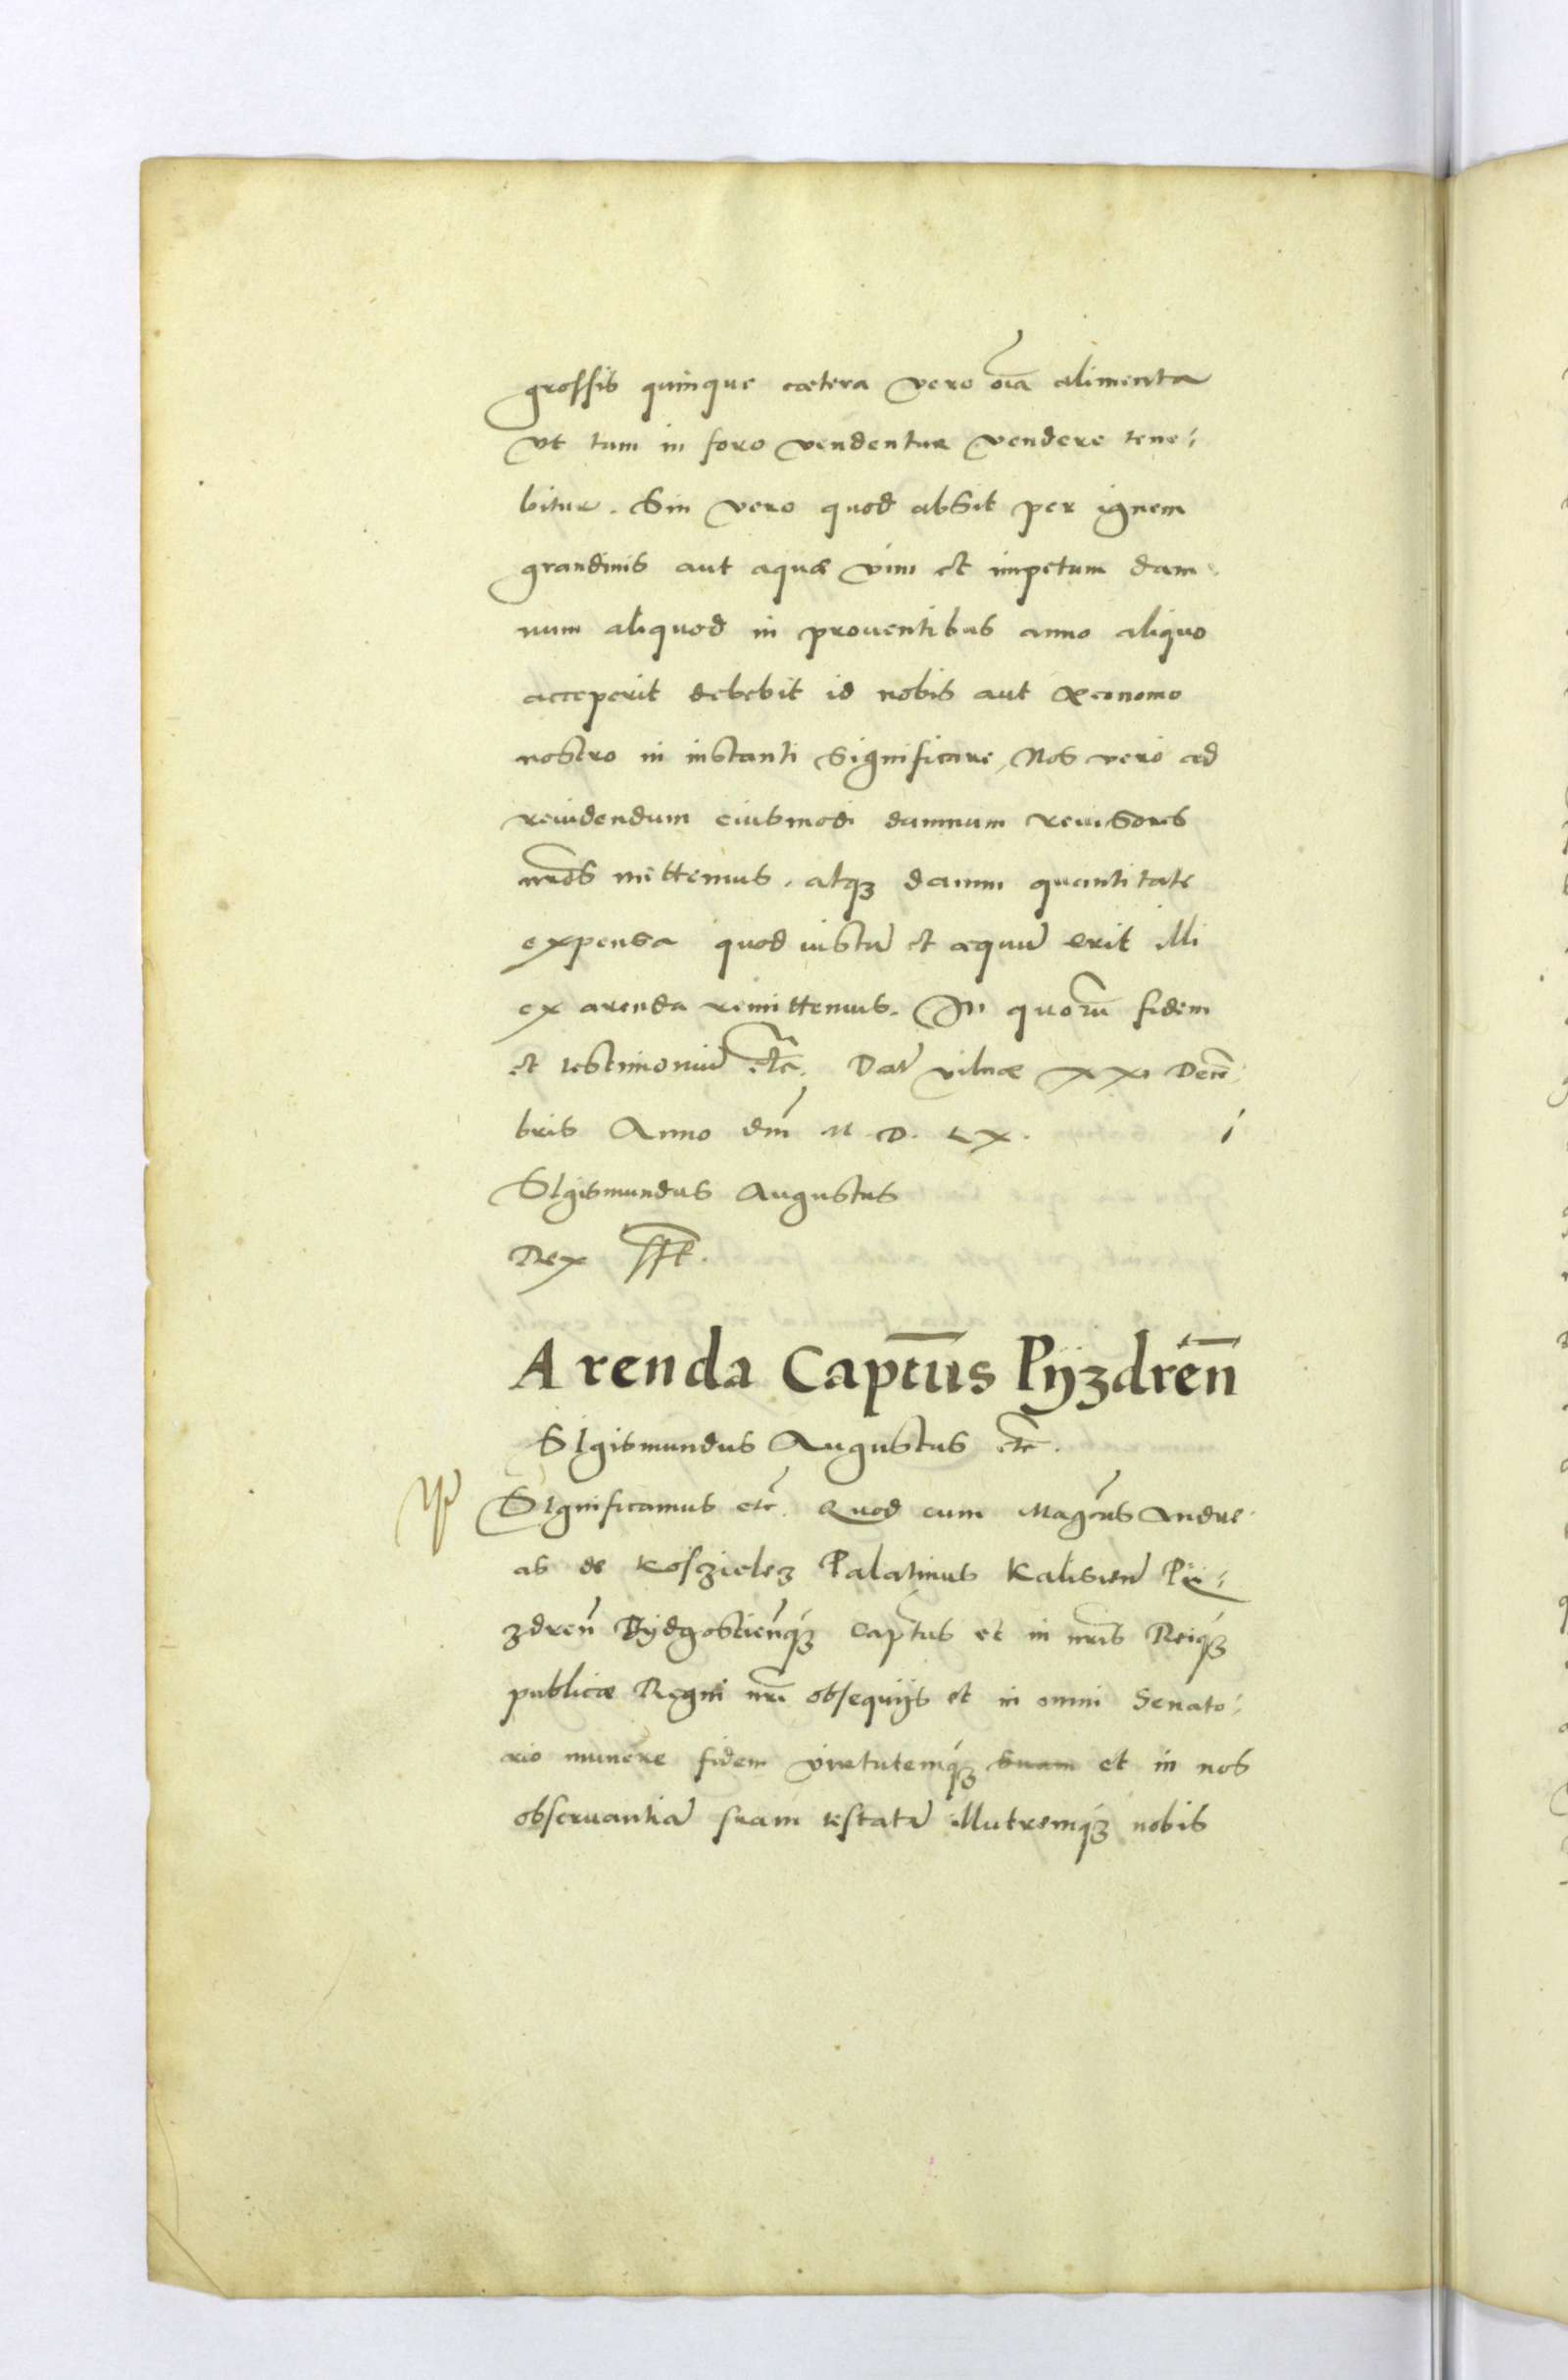 grossis quinque cætera vero oīa alimenta
vt tum in foro vendentur vendere tene⸗
bitur. Sin vero quod absit per ignem
grandinis aut aquæ vim et impetum dam⸗
num aliquod in prouentibus anno aliquo
acceperit debebit id nobis aut œconomo
nostro in instanti significare, Nos vero ad
reuidendum eiusmodi damnum reuisores
nr̃os mittemus. atqꝫ damni quantitate
expensa quod iustũ et æquũ erit illi
ex arenda remittemus. In quorũ fidem
et testimoniũ etc̃. Dat̃ vilnæ XXI Decem̃
bris Anno dñi M. D. LX.
SIgismundus Augustus
Rex sst.
Arenda Capt̃us Pyzdreñ
SIgismundus Augustus etc̃.
SIgnificamus etc̃. Quod cum Mag̃cus Andre⸗
as de Kosczielecz Palatinus Kalisien̄ Py⸗
zdreñ Bydgostien̄qꝫ Capt̃us et in nr̃is Reiqꝫ
publicæ Regni nr̃i obsequijs et in omni Senato⸗
rio munere fidem virtutemqꝫ suam et in nos
obseruantiã suam testatã illutremqꝫ nobis